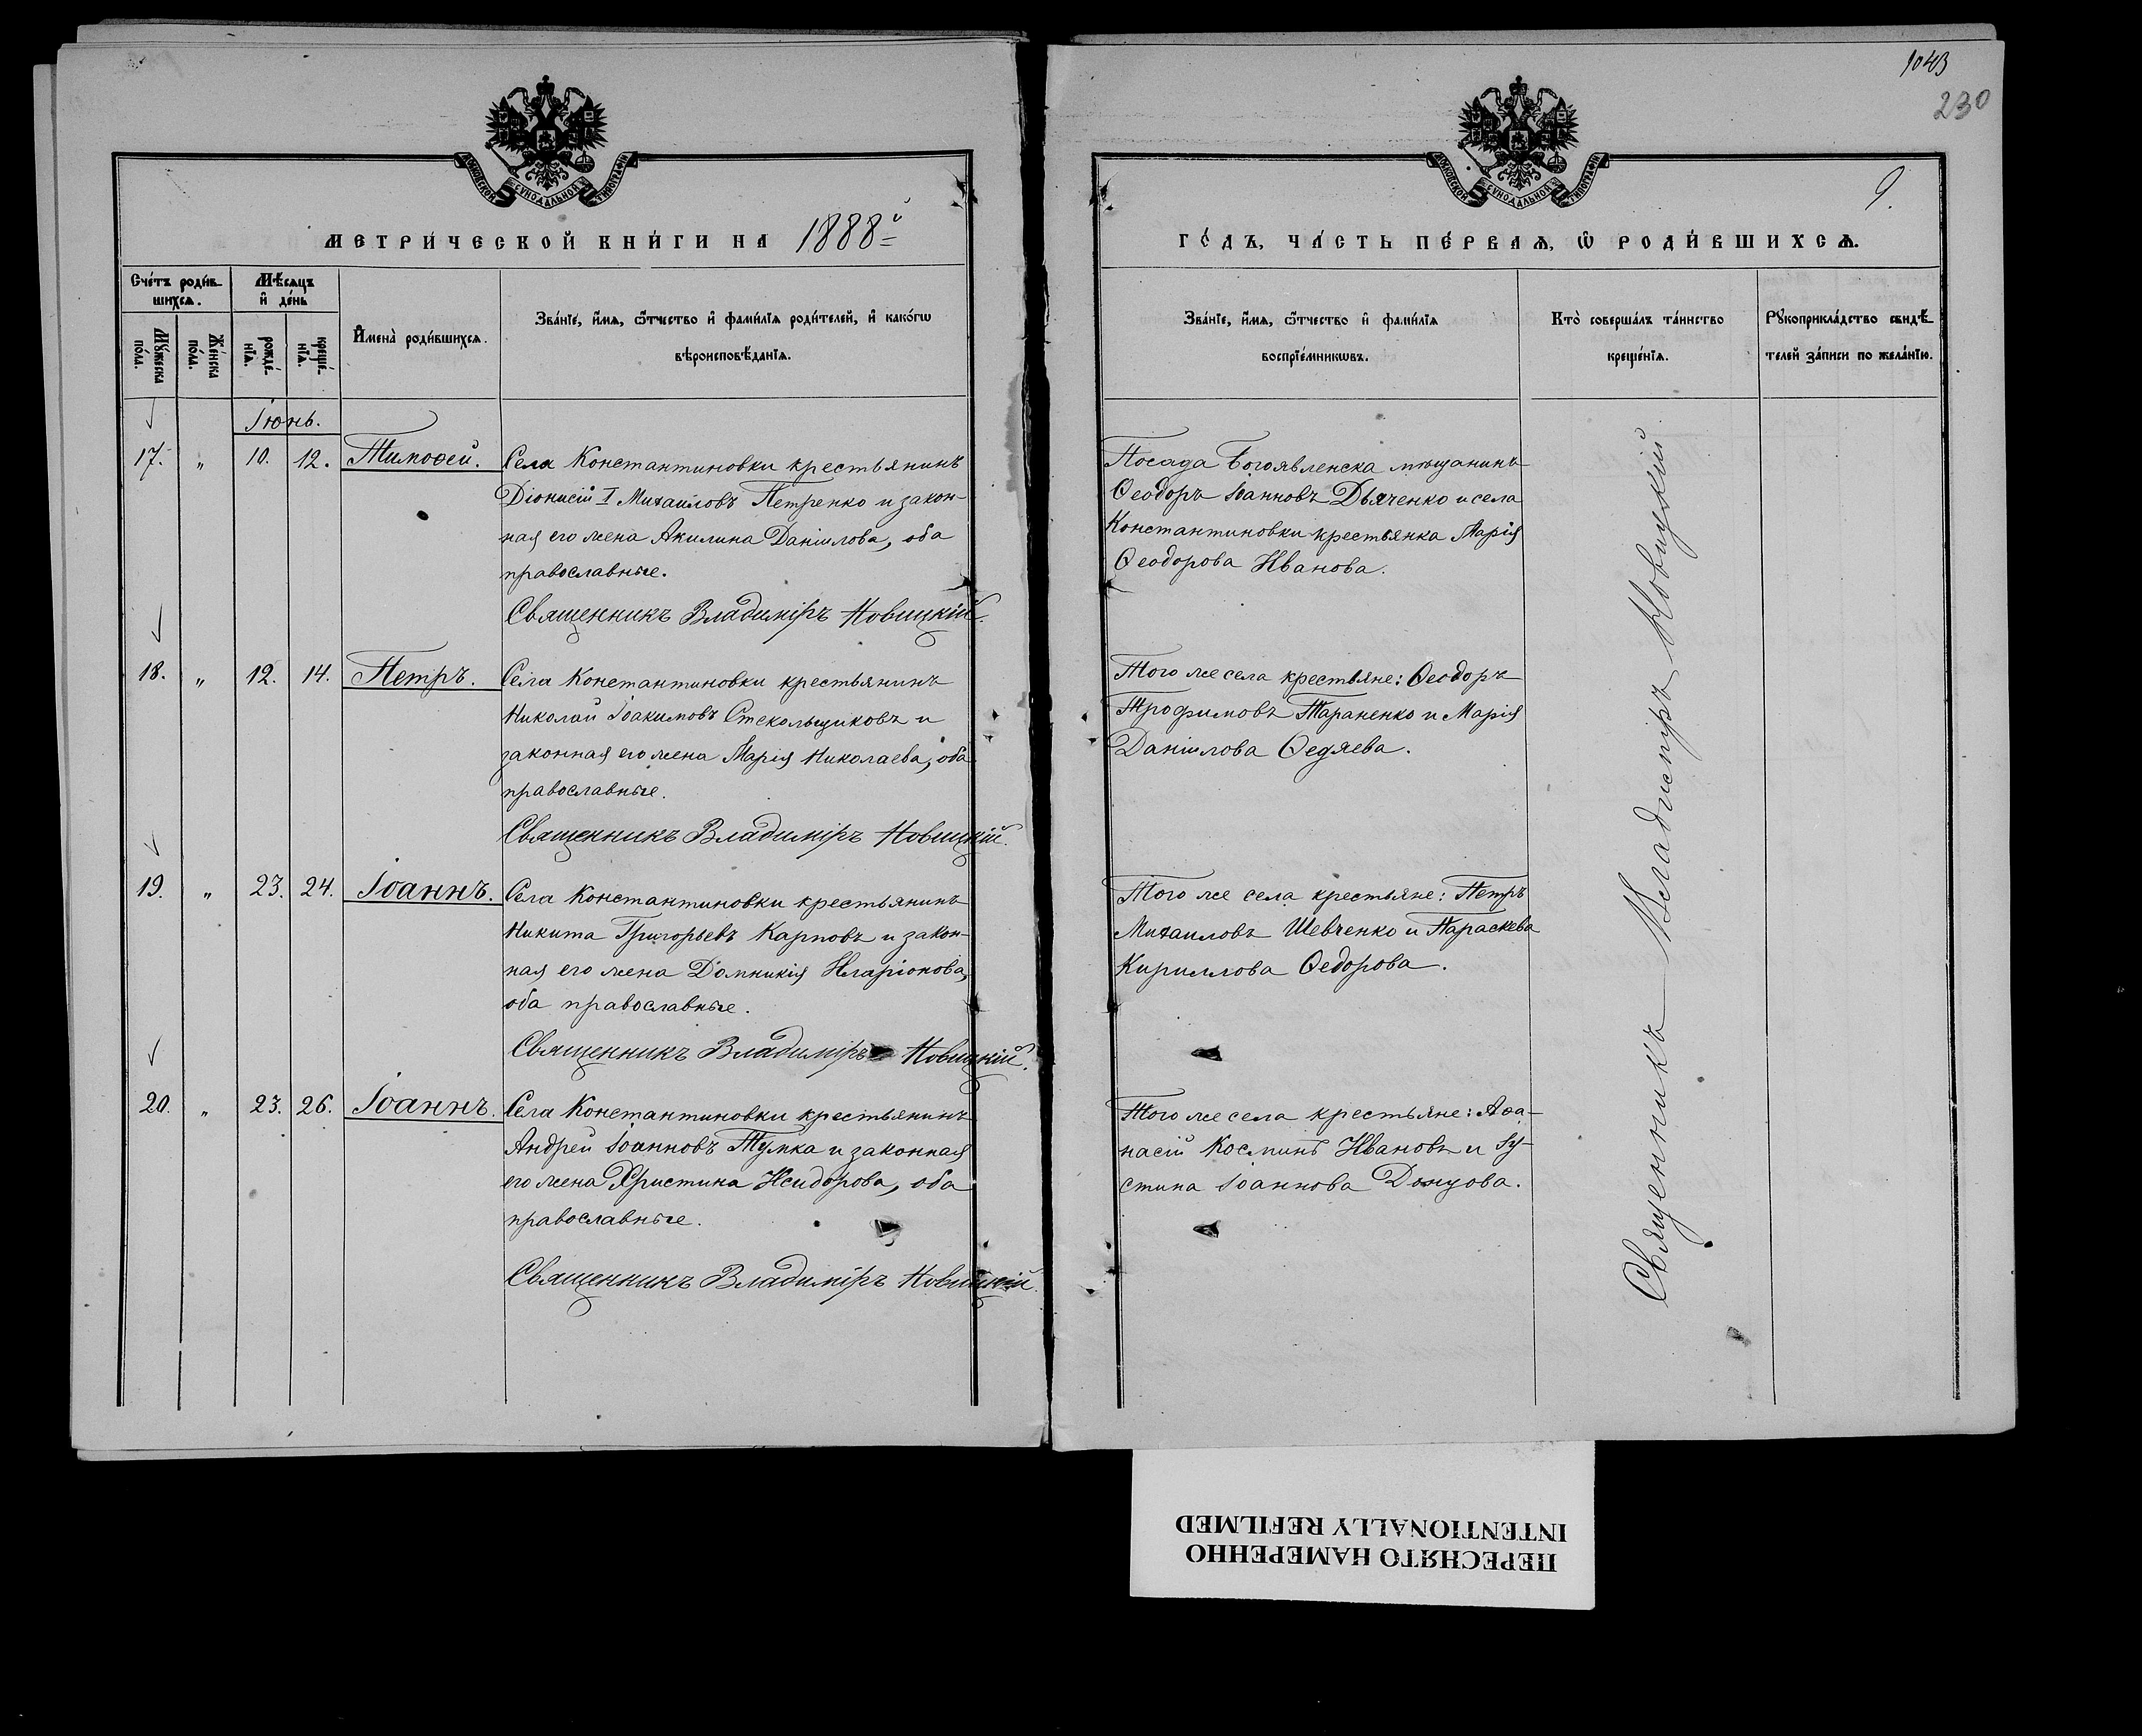 1043
230
МОСКОВСКОЙ СѴНОДАЛЬНОЙ ТИПОГРАФІИ
МЕТРИ́ЧЕСКОЙ КНИ́ГИ НА 1888й
Сче́тъ роди́в-
шихсѧ.
Мѣ́сѧцъ
и҆ де́нь
Мꙋ́жеска
по́ла.
Же́нска
по́ла.
рожде́-
нїѧ.
креще́-
нїѧ.
И҆мена̀ роди́вшихсѧ.
Зва́нїе, и҆́мѧ, ѻ҆́тчество и҆ фами́лїѧ роди́телей, и҆ како́гѡ
вѣроисповѣ́данїѧ.
Іюнь.
17. " 10. 12. Тимоѳей. Села Константиновки крестьянинъ
Діонисій I Михаиловъ Петренко и закон-
ная его жена Акилина Даніилова, оба
православные.
Священникъ Владиміръ Новицкій.
18. " 12. 14. Петръ. Села Константиновки крестьянинъ
Николай Іоакимовъ Стекольщиковъ и
законная его жена Марія Николаева, оба
православные.
Священникъ Владиміръ Новицкій.
19. " 23. 24. Іоаннъ. Села Константиновки крестьянинъ
Никита Григорьевъ Карповъ и закон-
ная его жена Домникія Иларіонова,
оба православные.
Священникъ Владиміръ Новицкій.
20. " 23. 26. Іоаннъ. Села Константиновки крестьянинъ
Андрей Іоанновъ Тумка и законная
его жена Христина Исидорова, оба
православные.
Священникъ Владиміръ Новицкій.
МОСКОВСКОЙ СѴНОДАЛЬНОЙ ТИПОГРАФІИ
9.
ГО́ДЪ, ЧА́СТЬ ПЕ́РВАѦ, Ѡ҆ РОДИ́ВШИХСѦ.
Зва́нїе, и҆́мѧ, ѻ҆́тчество и҆ фами́лїѧ
воспрїе́мникѡвъ.
Кто̀ соверша́лъ та́инство
креще́нїѧ.
Рꙋкоприкла́дство свидѣ́-
телей за́писи по жела́нїю.
Посада Богоявленска мѣщанинъ
Ѳеодоръ Іоанновъ Дьяченко и села
Константиновки крестьянка Марія
Ѳеодорова Иванова.
Того же села крестьяне: Ѳеодоръ
Трофимовъ Тараненко и Марія
Даніилова Ѳедяева.
Того же села крестьяне: Петръ
Михаиловъ Шевченко и Параскева
Кириллова Ѳедорова.
Того же села крестьяне: Аѳа-
насій Косминъ Ивановъ и Іу-
стина Іоаннова Донцова.
Священникъ Владиміръ Новицкій.
ПЕРЕСНЯТО НАМЕРЕННО
INTENTIONALLY REFILMED